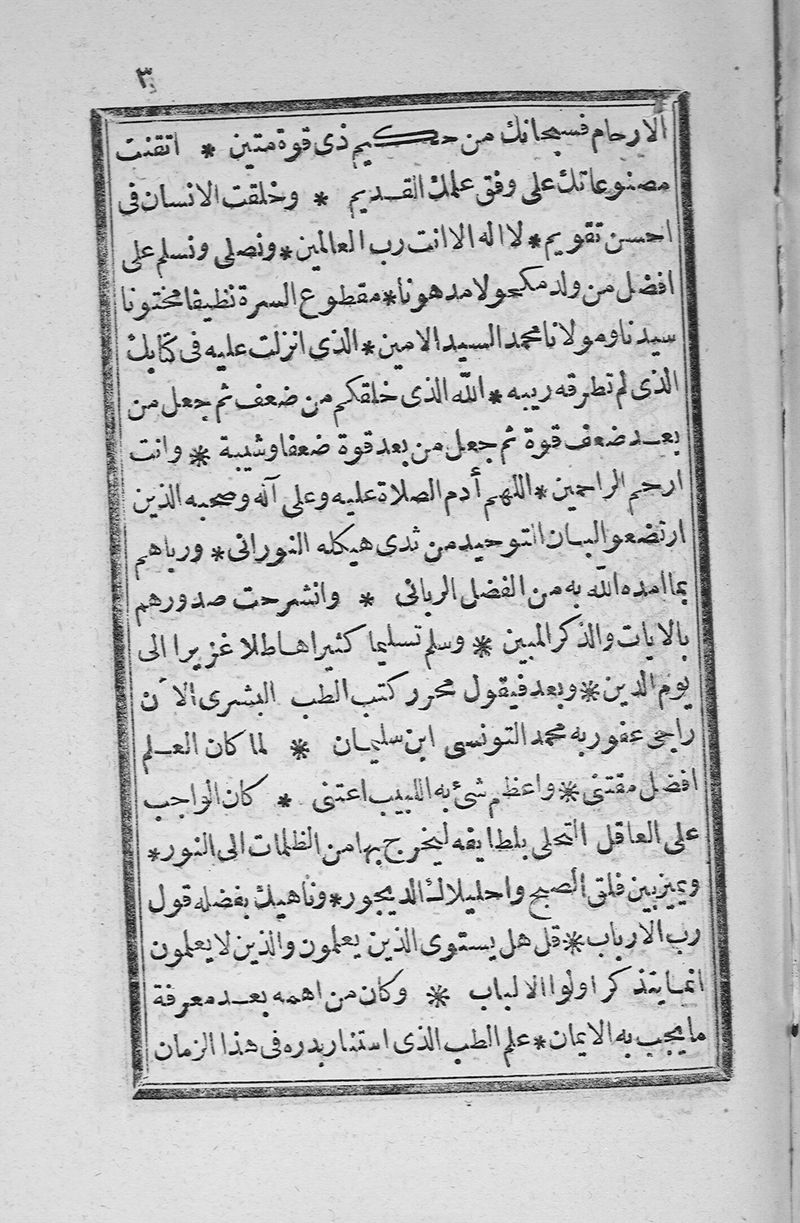 ٣
الارحام فسبحانك من حكيم ذى قوة متين * اتقنت
مصنوعاتك على وفق علمك القديم * وخلقت الانسان فى
احسن تقويم * لا اله الا انت رب العالمين * ونصلى ونسلم على
افضل من ولد مكحولا مدهونا * مقطوع السرة نظيفا مختونا
سيدنا ومولانا محمد السيد الامين * الذى انزلت عليه فى كتابك
الذى لم تطرقه ريبه * الله الذى خلقكم من ضعف ثم جعل من
بعد ضعف قوة ثم جعل من بعد قوة ضعفا وشيبة * وانت
ارحم الراحمين * اللهم أدم الصلاة عليه وعلى آله وصحبه الذين
ارتضعوا لبان التوحيد من ثدى هيكله النورانى * ورباهم
بما امده الله به من الفضل الربانى * وانشرحت صدورهم
بالايات والذكر المبين * وسلم تسليما كثيرا هاطلا غزيرا الى
يوم الدين * وبعد فيقول محرر كتب الطب البشرى الآن
راجى عفو ربه محمد التونسى ابن سليمان * لما كان العلم
افضل مقتنى * واعظم شئ به اللبيب اعتنى * كان الواجب
على العاقل التحلى بلطايفه ليخرج بها من الظلمات الى النور *
ويميز بين فلق الصبح واحليلاك الديجور * وناهيك بفضله قول
رب الارباب * قل هل يستوى الذين يعلمون والذين لا يعلمون
انما يتذكر اولوا الالباب * وكان من اهمه بعد معرفة
ما يجب به الايمان * علم الطب الذى استنار بدره فى هذا الزمان